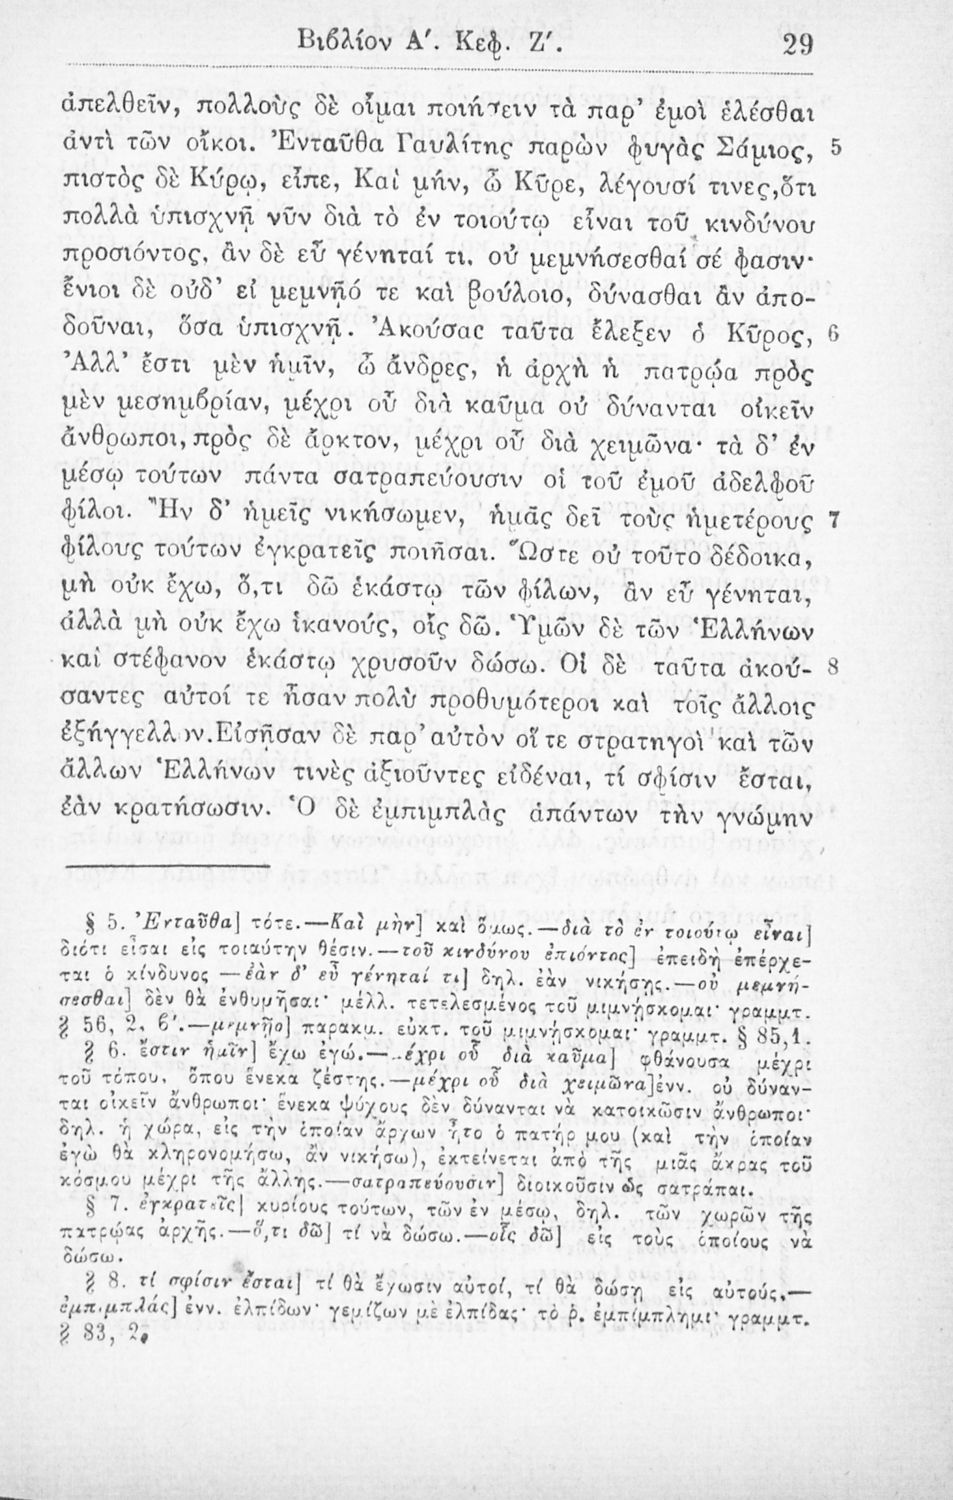 Βιβλίον Α′. Κεφ. Ζ′. 29
ἀπελθεῖν, πολλοὺς δὲ οἶμαι ποιήσειν τὰ παρ’ ἐμοὶ ἑλέσθαι
ἀντὶ τῶν οἴκοι. Ἐνταῦθα Γαυλίτης παρὼν φυγὰς Σάμιος, 5
πιστὸς δὲ Κύρῳ, εἶπε, Καὶ μήν, ὦ Κῦρε, λέγουσί τινες, ὅτι
πολλὰ ὑπισχνῇ νῦν διὰ τὸ ἐν τοιούτῳ εἶναι τοῦ κινδύνου
προσιόντος, ἂν δὲ εὖ γένηταί τι, οὐ μεμνήσεσθαί σέ φασιν·
ἔνιοι δὲ οὐδ’ εἰ μεμνῇό τε καὶ βούλοιο, δύνασθαι ἂν ἀπο-
δοῦναι, ὅσα ὑπισχνῇ. Ἀκούσας ταῦτα ἔλεξεν ὁ Κῦρος, 6
Ἀλλ’ ἔστι μὲν ἡμῖν, ὦ ἄνδρες, ἡ ἀρχὴ ἡ πατρῴα πρὸς
μὲν μεσημβρίαν, μέχρι οὗ διὰ καῦμα οὐ δύνανται οἰκεῖν
ἄνθρωποι, πρὸς δὲ ἄρκτον, μέχρι οὗ διὰ χειμῶνα· τὰ δ’ ἐν
μέσῳ τούτων πάντα σατραπεύουσιν οἱ τοῦ ἐμοῦ ἀδελφοῦ
φίλοι. Ἢν δ’ ἡμεῖς νικήσωμεν, ἡμᾶς δεῖ τοὺς ἡμετέρους 7
φίλους τούτων ἐγκρατεῖς ποιῆσαι. Ὥστε οὐ τοῦτο δέδοικα,
μὴ οὐκ ἔχω, ὅ,τι δῶ ἑκάστῳ τῶν φίλων, ἂν εὖ γένηται,
ἀλλὰ μὴ οὐκ ἔχω ἱκανούς, οἷς δῶ. Ὑμῶν δὲ τῶν Ἑλλήνων
καὶ στέφανον ἑκάστῳ χρυσοῦν δώσω. Οἱ δὲ ταῦτα ἀκού- 8
σαντες αὐτοί τε ἦσαν πολὺ προθυμότεροι καὶ τοῖς ἄλλοις
ἐξήγγελλον. Εἰσῇσαν δὲ παρ’ αὐτὸν οἵ τε στρατηγοὶ καὶ τῶν
ἄλλων Ἑλλήνων τινὲς ἀξιοῦντες εἰδέναι, τί σφίσιν ἔσται,
ἐὰν κρατήσωσιν. Ὁ δὲ ἐμπιμπλὰς ἁπάντων τὴν γνώμην
§ 5. Ἐνταῦθα] τότε.—Καὶ μὴν] καὶ ὅμως.—διὰ τὸ ἐν τοιούτῳ εἶναι]
διότι εἶσαι εἰς τοιαύτην θέσιν.—τοῦ κινδύνου ἐπιόντος] ἐπειδὴ ἐπέρχε-
ται ὁ κίνδυνος —ἐὰν δ’ εὖ γένηταί τι] δηλ. ἐὰν νικήσῃς.—οὐ μεμνή-
σεσθαι] δὲν θὰ ἐνθυμῆσαι· μέλλ. τετελεσμένος τοῦ μιμνῄσκομαι· γραμμτ.
§ 56, 2, β′.—μεμνῇο] παρακμ. εὐκτ. τοῦ μιμνῄσκομαι· γραμμτ. § 85,1.
§ 6. ἔστιν ἡμῖν] ἔχω ἐγώ.—μέχρι οὗ διὰ καῦμα] φθάνουσα μέχρι
τοῦ τόπου, ὅπου ἕνεκα ζέστης.—μέχρι οὗ διὰ χειμῶνα] ἐνν. οὐ δύναν-
ται οἰκεῖν ἄνθρωποι· ἕνεκα ψύχους δὲν δύνανται νὰ κατοικῶσιν ἄνθρωποι·
δηλ. ἡ χώρα, εἰς τὴν ὁποίαν ἄρχων ἦτο ὁ πατήρ μου (καὶ τὴν ὁποίαν
ἐγὼ θὰ κληρονομήσω, ἂν νικήσω), ἐκτείνεται ἀπὸ τῆς μιᾶς ἄκρας τοῦ
κόσμου μέχρι τῆς ἄλλης.—σατραπεύουσιν] διοικοῦσιν ὡς σατράπαι.
§ 7. ἐγκρατεῖς] κυρίους τούτων, τῶν ἐν μέσῳ, δηλ. τῶν χωρῶν τῆς
πατρῴας ἀρχῆς.—ὅ,τι δῶ] τί νὰ δώσω.—οἷς δῶ] εἰς τοὺς ὁποίους νὰ
δώσω.
§ 8. τί σφίσιν ἔσται] τί θὰ ἔχωσιν αὐτοί, τί θὰ δώσῃ εἰς αὐτούς.—
ἐμπιμπλάς] ἐνν. ἐλπίδων· γεμίζων μὲ ἐλπίδας· τὸ ῥ. ἐμπίμπλημι· γραμμτ.
§ 83, 2.